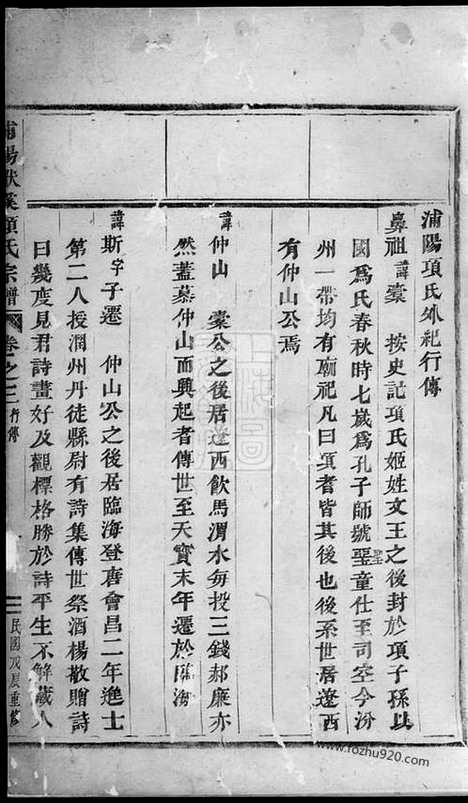 浦陽項氏外祀行傳
鼻祖諱橐　按史記項氏姬姓文王之後封於項子孫以
國爲氏春秋時七歲爲孔子師號聖童仕至司空今汾
聖
州一帶均有廟祀凡曰項者皆其後也後系世居遼西
有仲山公焉
諱仲山　橐公之後居遼西飲馬渭水每投三錢郝廉亦
然蓋慕仲山而興起者傳世至天寶末年遷於臨海
諱斯字子遷　仲山公之後居臨海登唐會昌二年進士
第二人授潤州丹徒縣尉有詩集傳世祭酒楊敬贈詩
曰幾度見君詩畫好及觀標格勝於詩平生不解藏人
浦陽 溪項氏宗譜　卷之二　行傳
民國戊辰重修
www.fozhu920.com